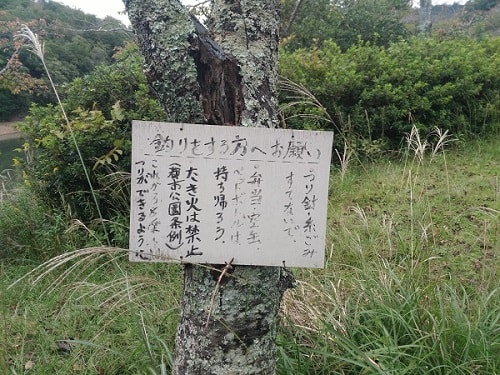 釣りをする方へお願い
つり針・糸・ごみ
すてないで
・弁当・空缶・
ペットボトルは
持ち帰ろう。
たき火は禁止
(都市公園条例)
これからも楽しく
つりができるように